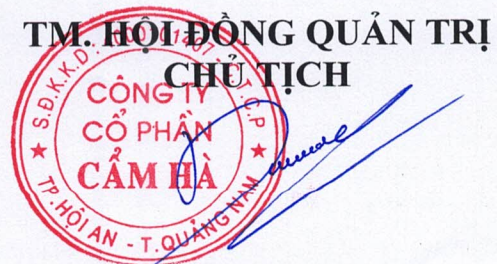 TM. HỘI ĐỒNG QUẢN TRỊ
CHỦ TỊCH
S.Đ.K.K.D:
C.T.C.P
CÔNG TY
CỔ PHẦN
CẨM HÀ
TP. HỘI AN - T. QUẢNG NAM